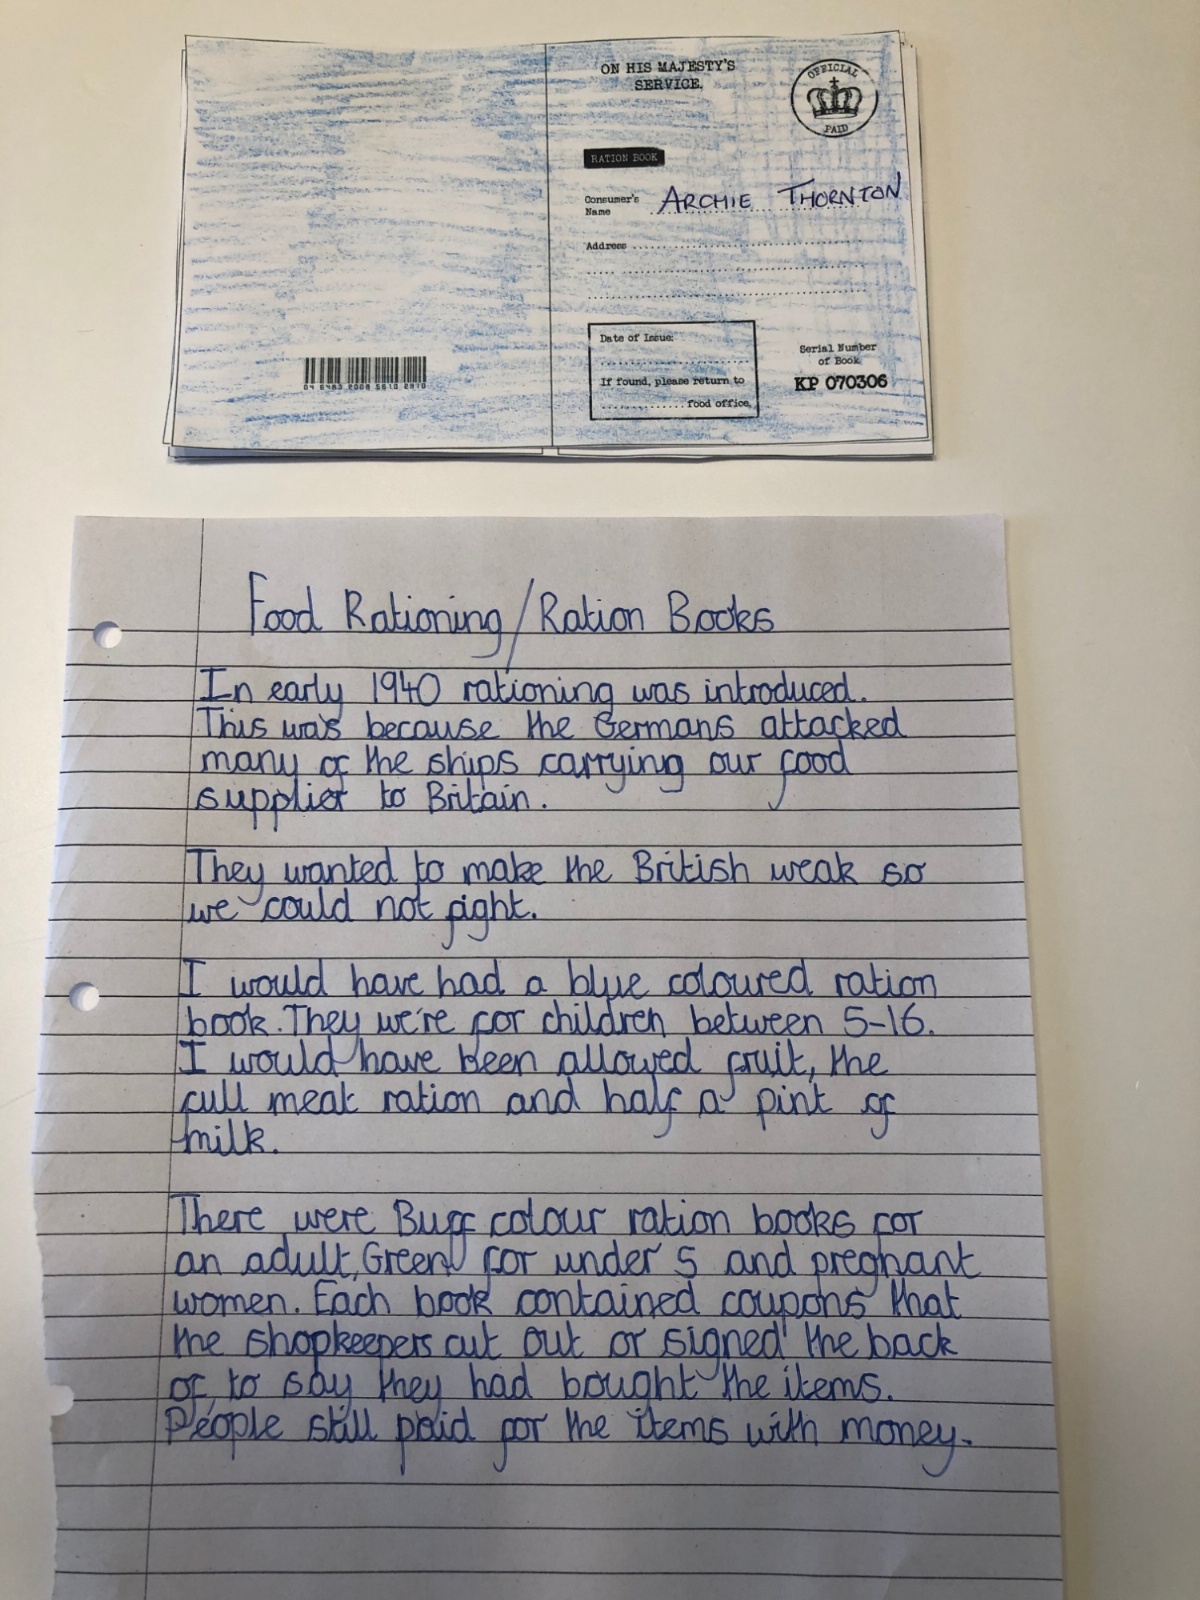 ON HIS MAJESTY'S
SERVICE.
OFFICIAL
PAID
RATION BOOK
Consumer's
Name ARCHIE THORNTON
Address
Date of Issue:
If found, please return to
food office.
Serial Number
of Book
KP 070306
Food Rationing/Ration Books
In early 1940 rationing was introduced.
This was because the Germans attacked
many of the ships carrying our food
supplier to Britain.
They wanted to make the British weak so
we could not fight.
I would have had a blue coloured ration
book. They we're for children between 5-16.
I would have been allowed fruit, the
full meat ration and half a pint of
milk.
There were Buff colour ration books for
an adult, Green for under 5 and pregnant
women. Each book contained coupons that
the shopkeepers cut out or signed the back
of, to say they had bought the items.
People still paid for the items with money.